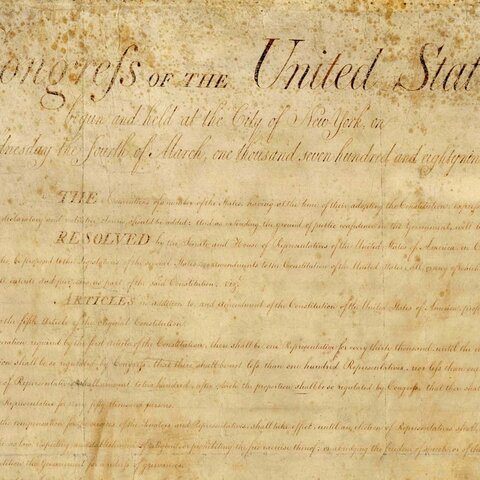 ongreſs OF THE United Stat
begun and held at the City of New York, on
dnesday the fourth of March, one thousand seven hundred and eightynin
THE Conventions of a number of the States, having at the time of their adopting the Constitution, expre
declaratory and restrictive clauses should be added: And as extending the ground of public confidence in the Government, will b
RESOLVED by the Senate and House of Representatives of the United States of America, in C
be proposed to the Legislatures of the several States as amendments to the Constitution of the United States, all, or any of which
all intents and purposes, as part of the said Constitution; viz.
ARTICLES in addition to, and Amendment of the Constitution of the United States of America, prop
the fifth Article of the Original Constitution.
eration required by the first article of the Constitution, there shall be one Representative for every thirty thousand, until the
tion shall be so regulated by Congreſs, that there shall be not leſs than one hundred Representatives, nor leſs than one
of Representatives shall amount to two hundred, after which the proportion shall be so regulated by Congreſs, that there shal
Representative for every fifty thousand persons.
the compensation for the services of the Senators and Representatives, shall take effect, until an election of Representatives shall
no law respecting an establishment of religion, or prohibiting the free exercise thereof; or abridging the freedom of speech, or of th
petition the Government for a redreſs of grievances.